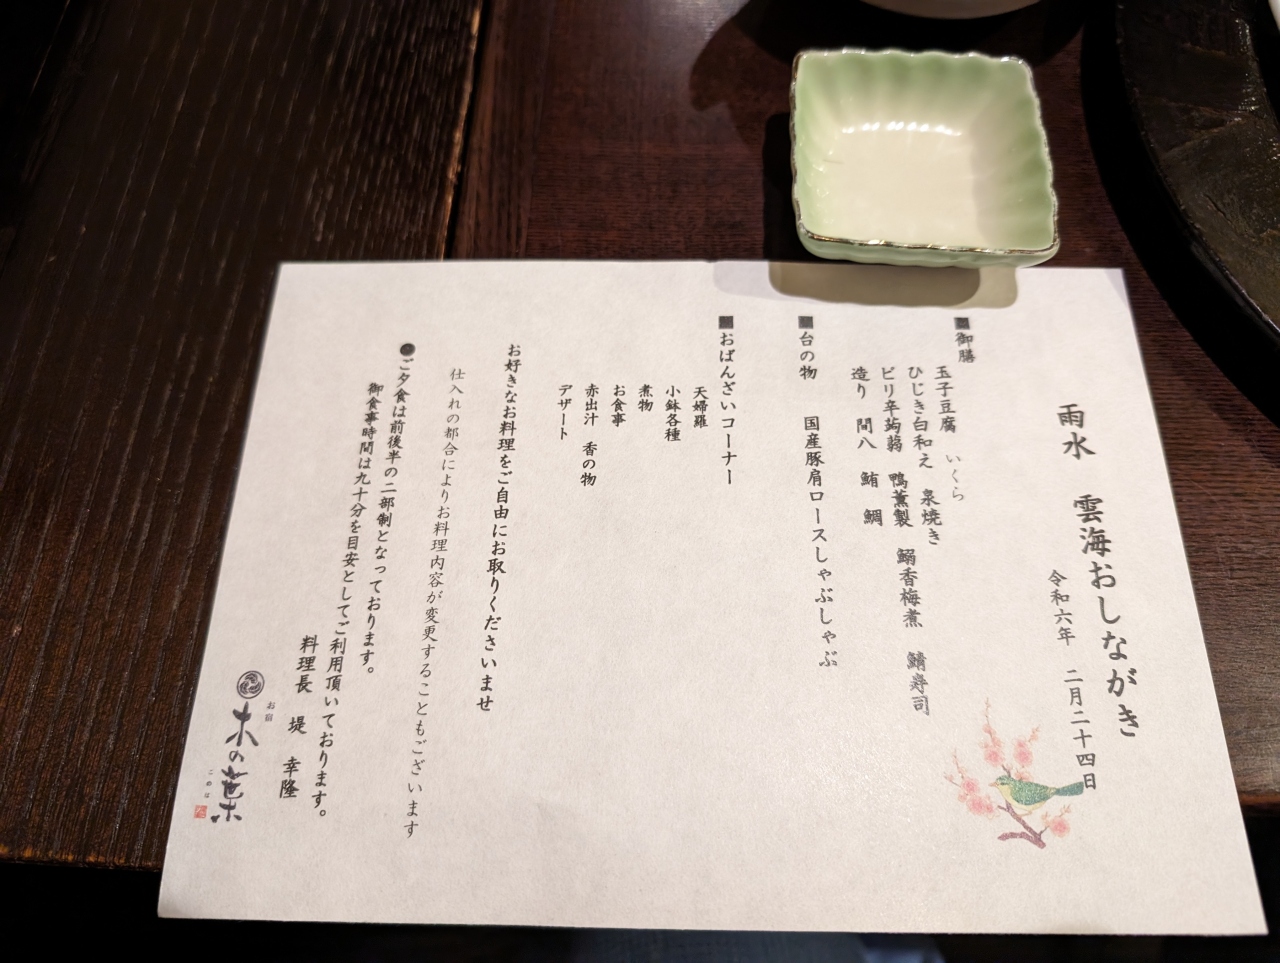 雨水　雲海おしながき
令和六年　二月二十四日
■御膳
玉子豆腐　いくら
ひじき白和え　泉焼き
ピリ辛蒟蒻　鴨薫製　鰯香梅煮　鯖寿司
造り　間八　鮪　鯛
■台の物　国産豚肩ロースしゃぶしゃぶ
■おばんざいコーナー
天婦羅
小鉢各種
煮物
お食事
赤出汁　香の物
デザート
お好きなお料理をご自由にお取りくださいませ
仕入れの都合によりお料理内容が変更することもございます
●ご夕食は前後半の二部制となっております。
御食事時間は九十分を目安としてご利用頂いております。
料理長　堤　幸隆
お宿
木の葉
このは